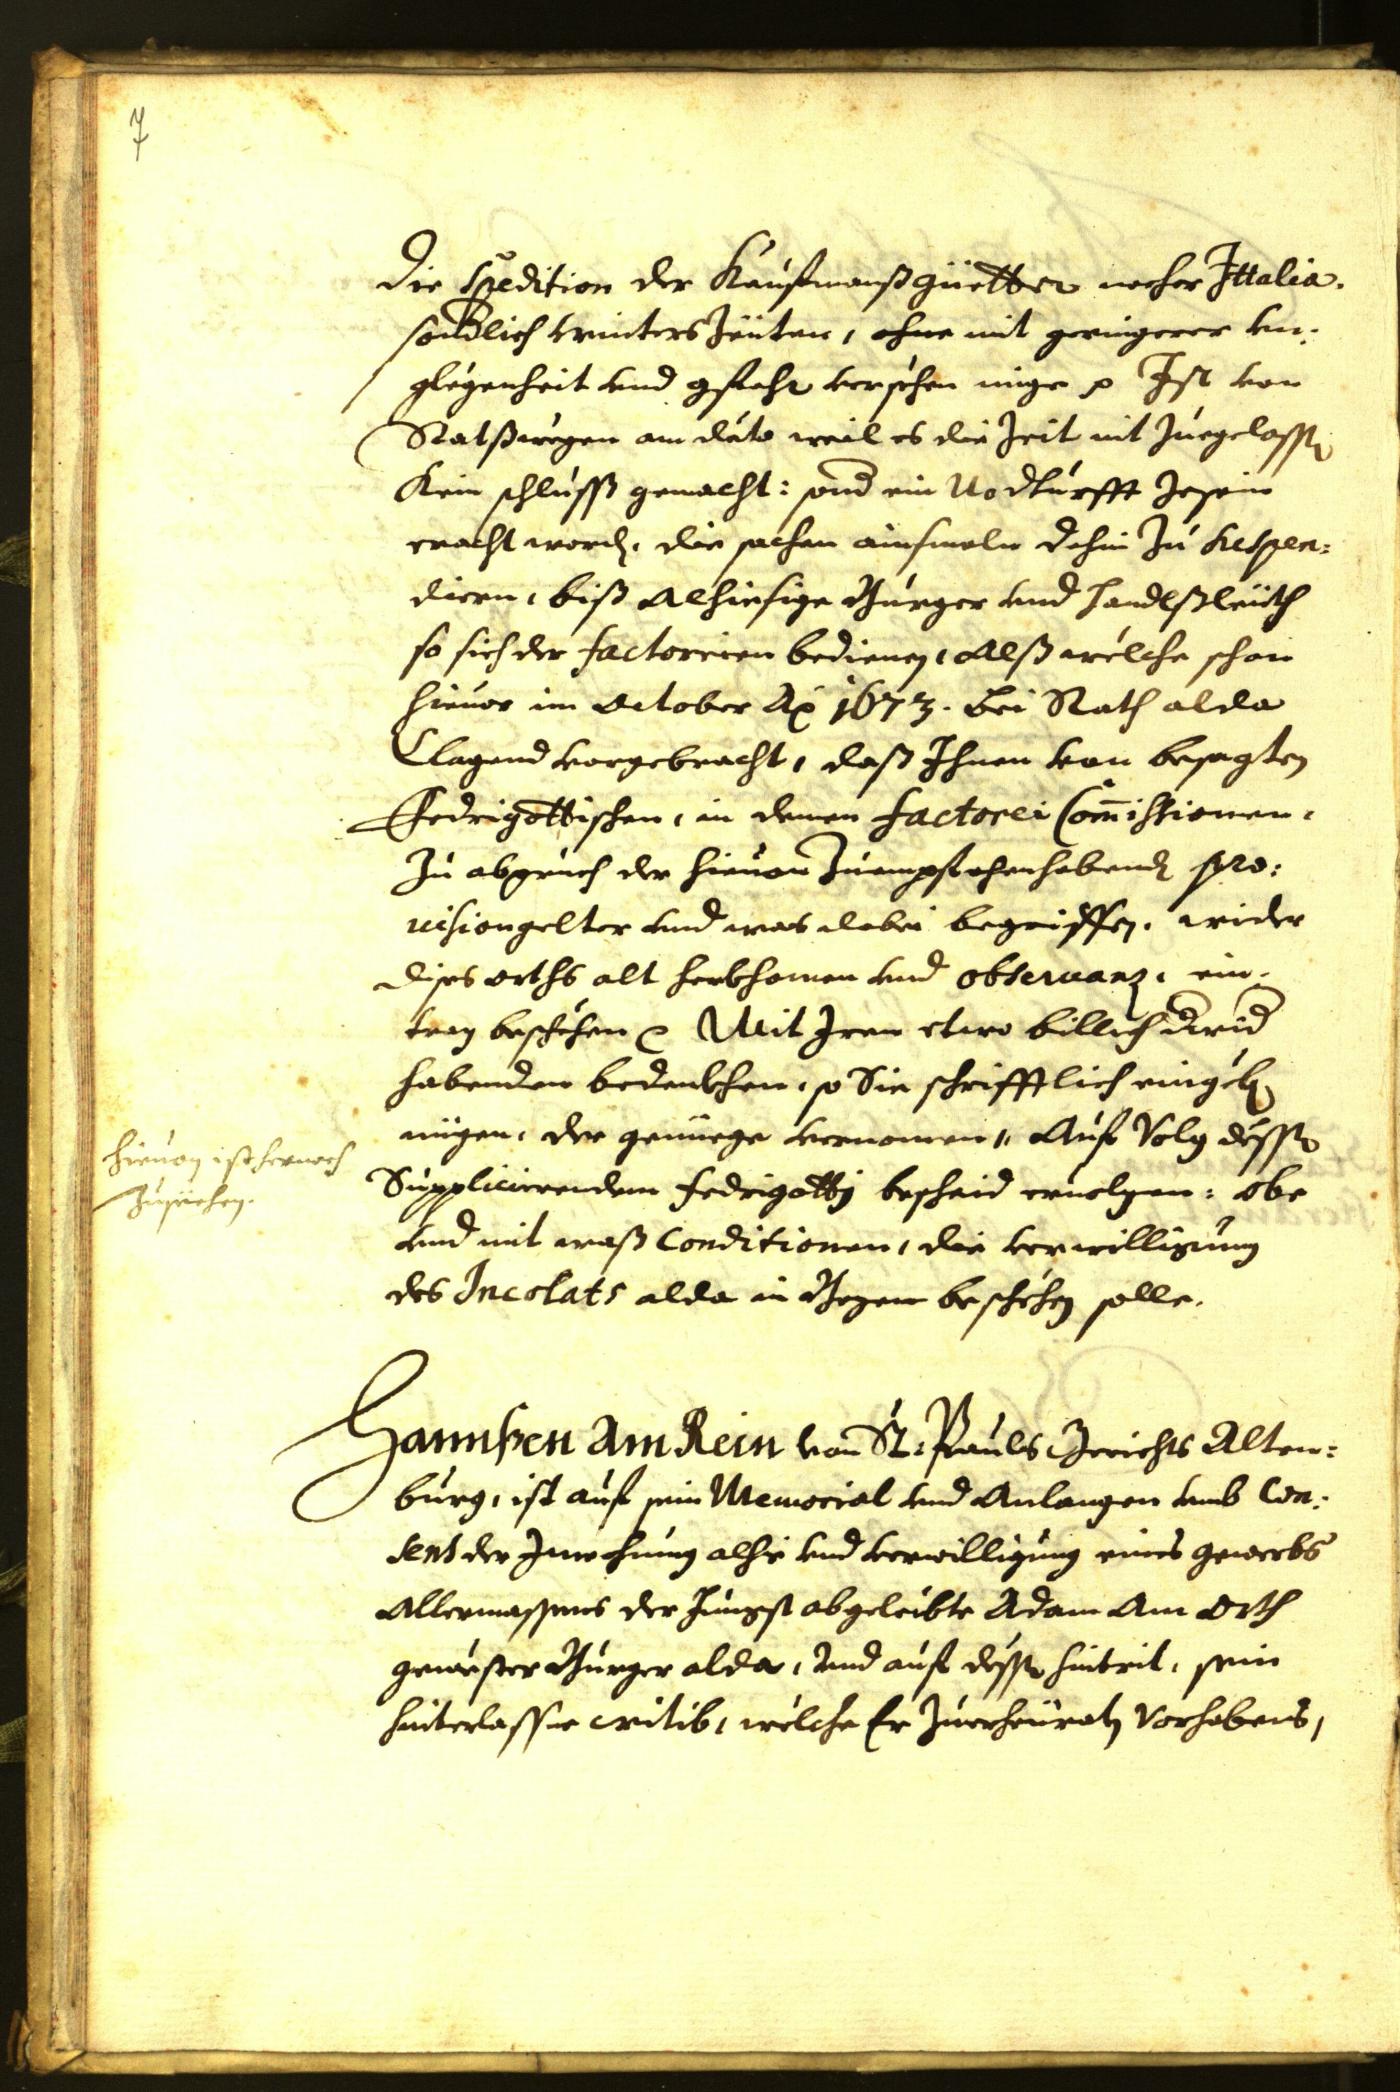 7
Die Spedition der Kaufmanßgüetter nacher Ittalia.
sonderlich winters Zeiten, ohne mit geringerer un:
glegenheit und gfahr versehen müge p Ist von
Rathswegen am dato weil es die Zeit nit Zuegelassen
Kein schluß gemacht: sond ein Nodturfft Zesein
eracht word. die sachen ainsmals dahin Zu suspen:
dieren, biß Alhiesige Burger und handlßleüth
so sich der factoreien bedienen, Alß welche schon
hievor im October Ao 1673. bei Rath alda
Clagend vorgebracht, daß Ihnen von besagten
Fedrigottischen, in denen factorei Com̄issionen,
Zu abpruch der hievon Zuempfahenhabend pro:
visiongelter und was dabei begriffen. wider
dises orths alt herkhomen und observanz, ein:
trag beschehen p Mit Iren etwo billich darwid
habenden bedenkhen, so Sie schrifftlich eingeben
mügen, der genüege vernomen, Auf Volg dessen
Supplicierendem fedrigotty bescheid ervolgen: Obe
und mit waß Conditionen, die verwilligung
des Incolats alda in Bozen beschehen solle.
hievon ist hernach
Zusechen.
Hannsen Am Rein von St: Pauls Gerichts Alten:
burg, ist auf sein Memorial und Anlangen umb Con:
sens der Inwohnung alhie und verwilligung eines gewerbs
Allermassens der Jüngst abgeleibte Adam Am Orth
gewester Burger alda, und auf dessen hintrit, sein
hinterlassne witib, welche Er Zuerheüraten Vorhabens,